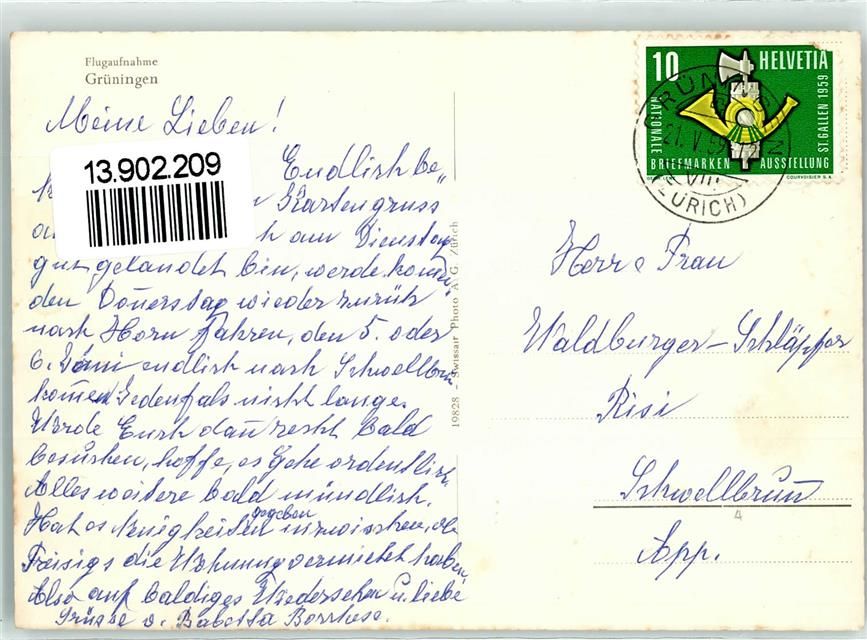 Flugaufnahme
Grüningen
Meine Lieben!
13.902.209
Endlich be=
Kartengruss
am Dienstag
gut gelandet bin, werde komen
den Donerstag wieder zurük
nach Horn fahren, den 5. oder
6. Juni endlich nach Schwellbrun
komen Jedenfals nicht lange.
Werde Euch dan recht bald
besuchen, hoffe, es Gehe ordentlich.
Alles weitere bald mündlich.
Hat es Neuigkeiten gegeben inzwischen, ob
Freisigs die Wohnung vermietet haben.
Also auf baldiges Wiedersehen u. liebe
Grüsse v. Babetta
19828 - Swissair Photo A. G. Zürich
10 HELVETIA
NATIONALE BRIEFMARKEN AUSSTELLUNG ST. GALLEN 1959
COURVOISIER S.A.
GRÜNINGEN
21. V. 59
(ZÜRICH)
Herr e Frau
Waldburger-Schläpfer
Risi
Schwellbrun
App.